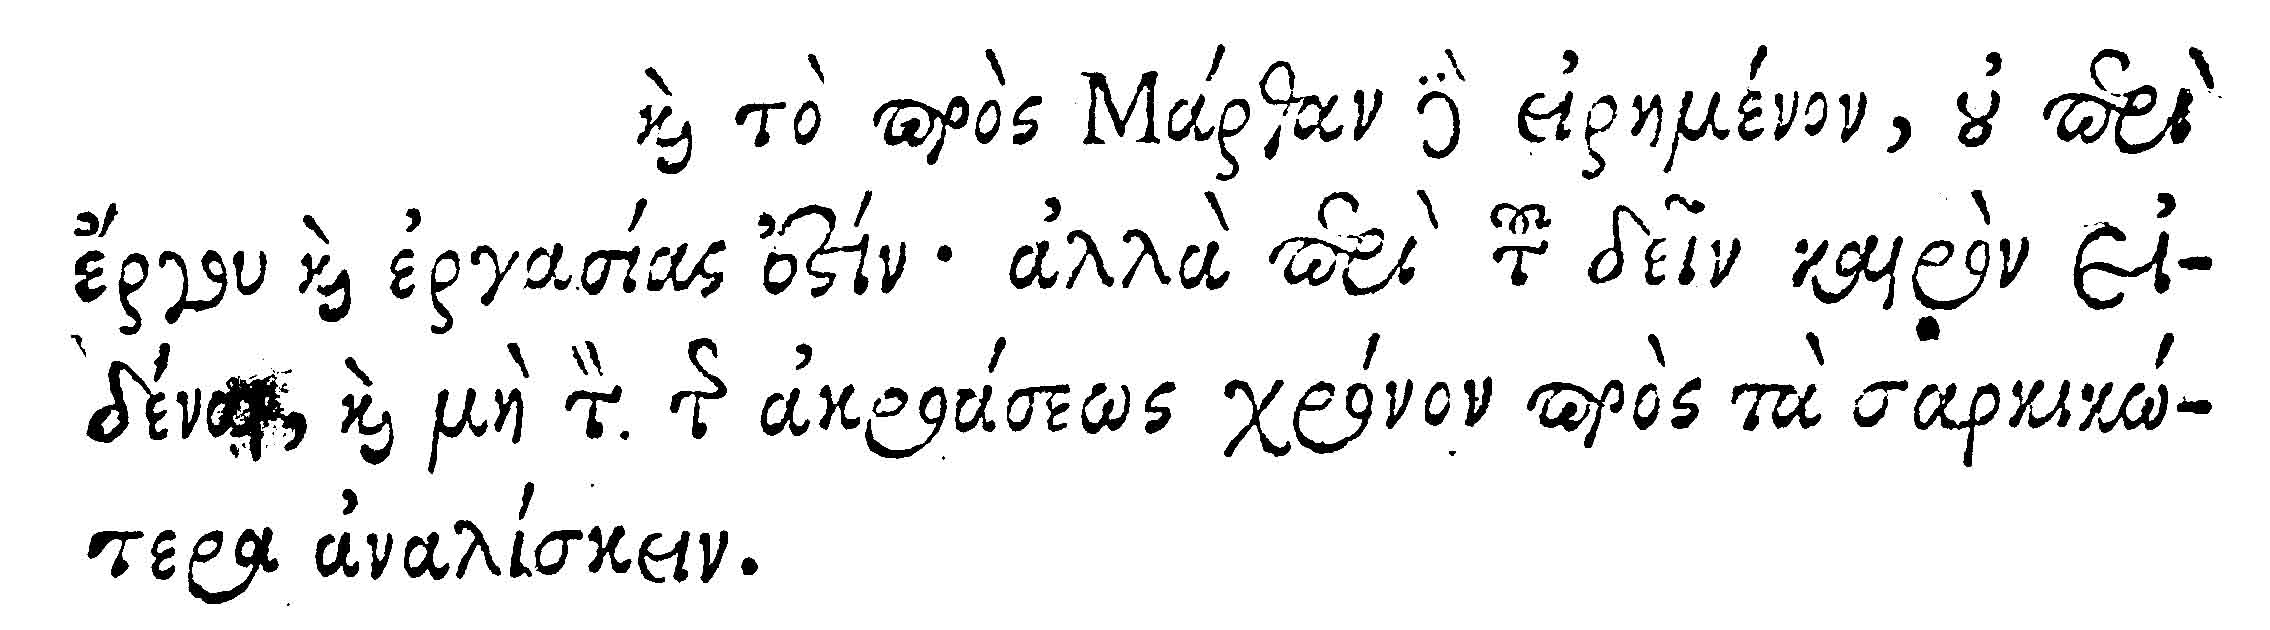 καὶ τὸ πρὸς Μάρθαν δὲ εἰρημένον, οὐ περὶ
ἔργου καὶ ἐργασίας ἐστίν· ἀλλὰ περὶ τοῦ δεῖν καιρὸν εἰ-
δέναι, καὶ μὴ τὸν τῆς ἀκροάσεως χρόνον πρὸς τὰ σαρκικώ-
τερα ἀναλίσκειν.